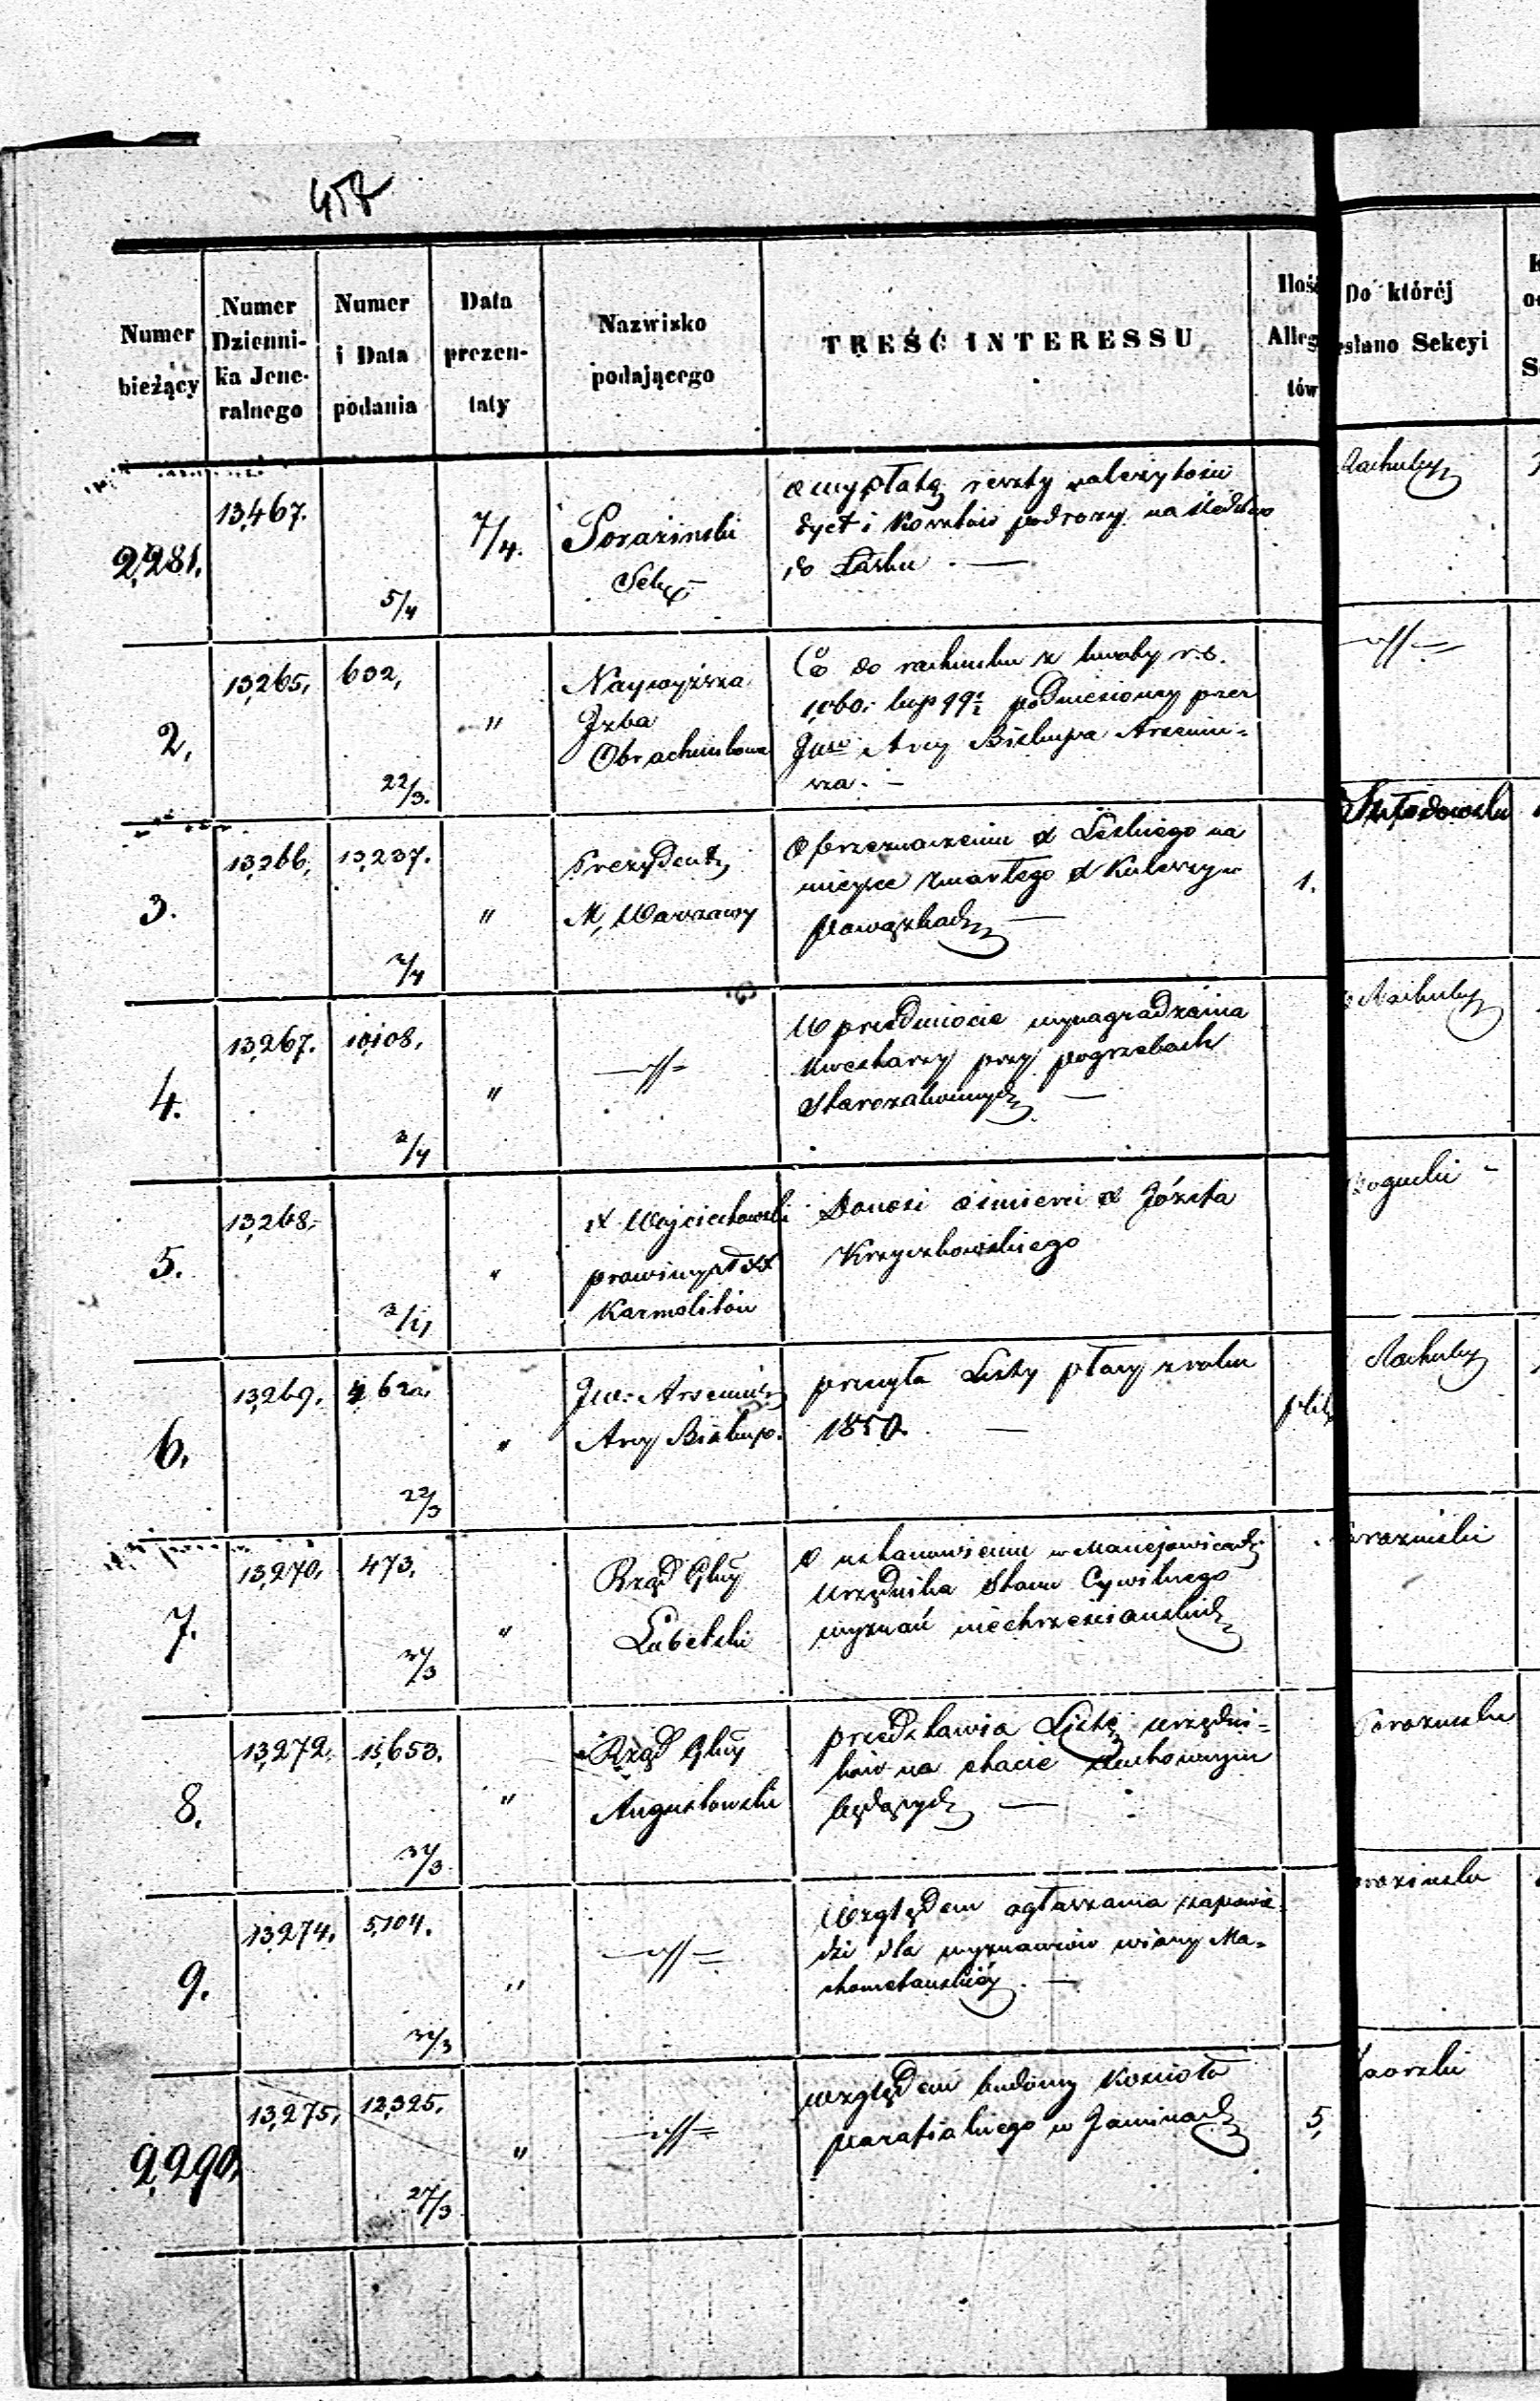 457
Numer
bieżący
Numer
Dzienni-
ka Jene-
ralnego
Numer
i Data
podania
Data
prezen-
taty
Nazwisko
podającego
TREŚĆ INTERESSU
Ilość
Alleg
tów
Do któréj
esłano Sekcyi
2,281.
13,467.
5/4
7/4.
Poraziński
o wypłatę reszty należytości
dyet i kosztów podroży na śledztwo
do Łasku. —
Rachuby
2,
13,265,
632,
22/3.
"
Naywyższa
Izba
Obrachunkowa
Co do rachunku z kwoty r.s.
1,060. kop 99½ podniesionéy przez
JW Arcy Biskupa Arseniu-
sza. —
3.
13,266,
13,237.
2/4
"
Prezydent
M, Warszawy
O przeznaczeniu X Leśkiego na
mieysce zmarłego X Kuleszy w
Powązkach —
1.
4.
13,267.
10,108,
2/4
"
W przedmiocie wynagradzania
kwestarzy przy pogrzebach
Starozakonnych —
Rachuby
5.
13,268.
"
X Wojciechowski
prowincyał XX
Karmelitów
Donosi o śmierci X Józefa
Krzyczkowskiego
6.
13,269.
22/3
"
JW. Arseniusz
Arcy Biskup.
przesyła Listy płacy z roku
1850. —
Rachuby
7.
13,270.
473.
31/3
"
Rząd Gbny
Lubelski
O ustanowieniu w Maciejowicach
Urzędnika Stanu Cywilnego
wyznań niechrześciańskich
8.
13,272,
15,653.
31/3
"
Rząd Gbny
Augustowski
przedstawia Listę urzędni-
ków na etacie duchownym
będących —
9.
13,274.
5,104.
31/3
"
Względem ogłaszania zapowie-
dzi dla wyznawców wiary Ma-
chometańskiéy. —
2,290,
13,275,
12,325.
27/3
"
względem budowy Kościoła
parafialnego w Jaminach
5,